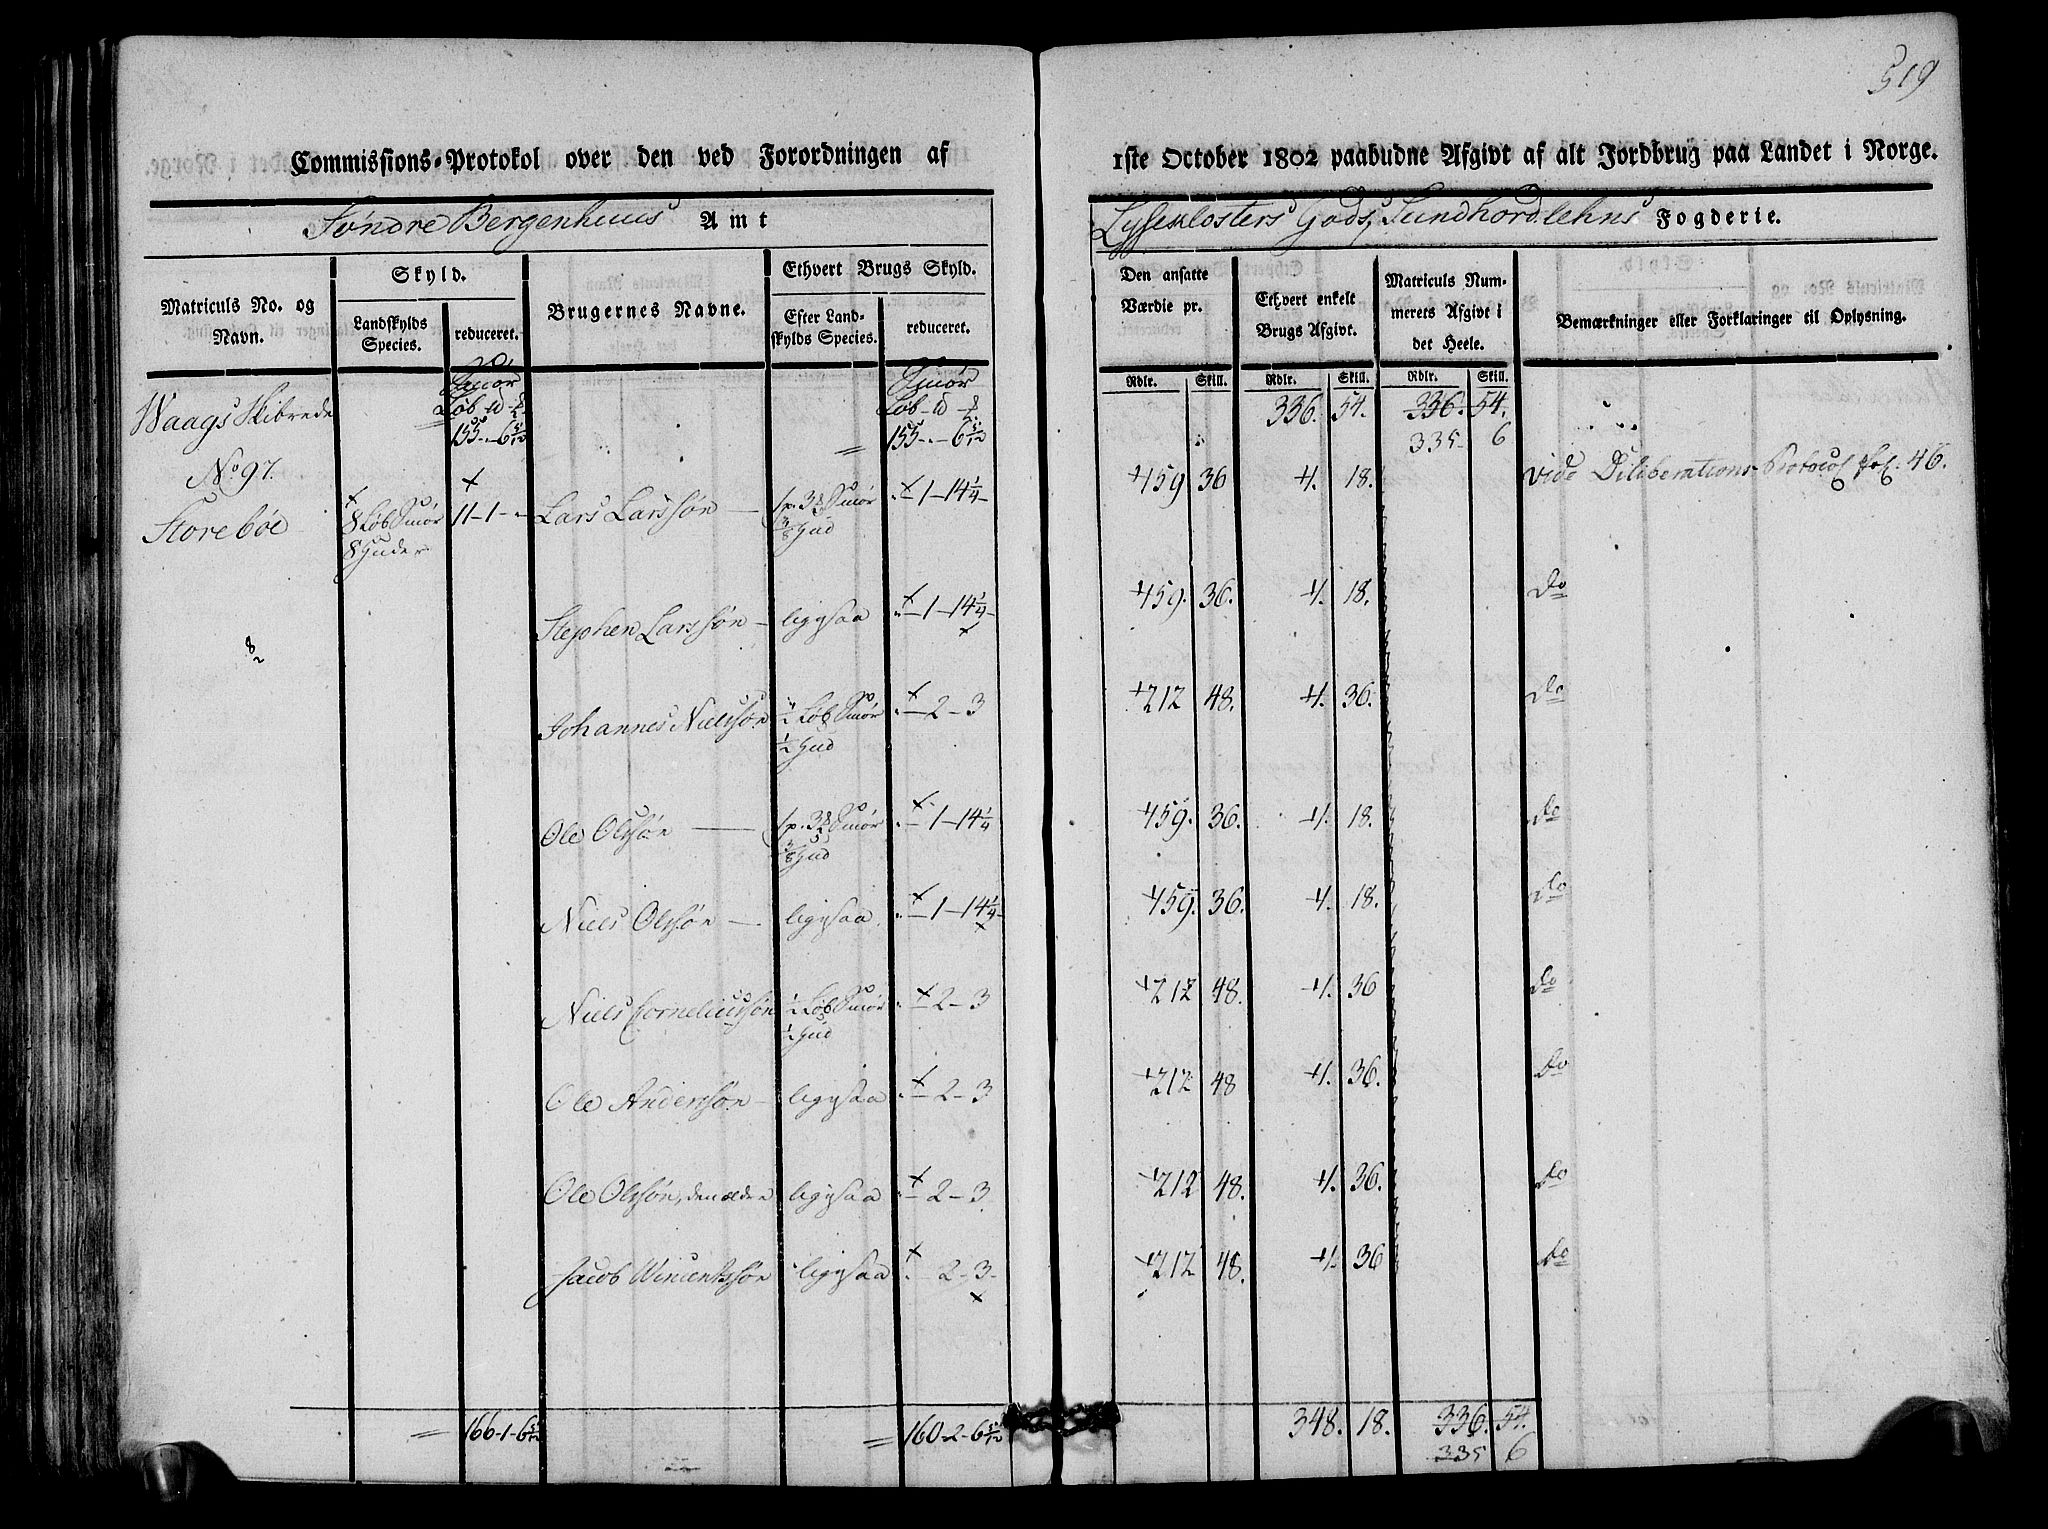 519
Commissions-Protokol over den ved Forordningen af 1ste October 1802 paabudne Afgivt af alt Jordbrug paa Landet i Norge.
Søndre Bergenhuus Amt
Lysseklosters Gods, Sundhordlehns Fogderie.
Matriculs No. og Navn.
Skyld.
Landskylds Species.
reduceret.
Brugernes Navne.
Ethvert Brugs Skyld.
Efter Landskylds Species.
reduceret.
Den ansatte Værdie pr.
Ethvert enkelt Brugs Afgivt.
Matriculs Nummerets Afgivt i det Heele.
Bemærkninger eller Forklaringer til Oplysning.
Rdlr. Skill. Rdlr. Skill. Rdlr. Skill.
Smør Smør
Waags Skibrede
155 - 6 5/12 155 - 6 5/12 336. 54. 336. 54.
335 6
No 97.
Storebøe 8 Løb Smør 8 Huder 11-1- Lars Larssøn 3/8 Hud 1-14 1/4 459 36 18. vide Deliberations-Protocol fol. 46.
Stephen Larssøn ligesaa 1-14 1/4 459. 36. 18. do
Johannes Nielssøn 1/2 Løb Smør 1/2 Hud 2-3 212 48. 36. do
Ole Olssøn 3/8 Hud 1-14 1/4 459. 36. 18. do
Niels Olssøn ligesaa 1-14 1/4 459. 36. 18. do
Niels Corneliussøn 1/2 Løb Smør 1/2 Hud 2-3 212 48. 36 do
Ole Anderssøn ligesaa 2-3 212 48 36. do
Ole Olssøn, den ældre ligesaa 2-3 212 48. 36. do
Jacob Wincentssøn ligesaa 2-3 212 48. 36 do
166-1-6 5/12 160-2-6 5/12 348. 18. 336. 54.
335 6